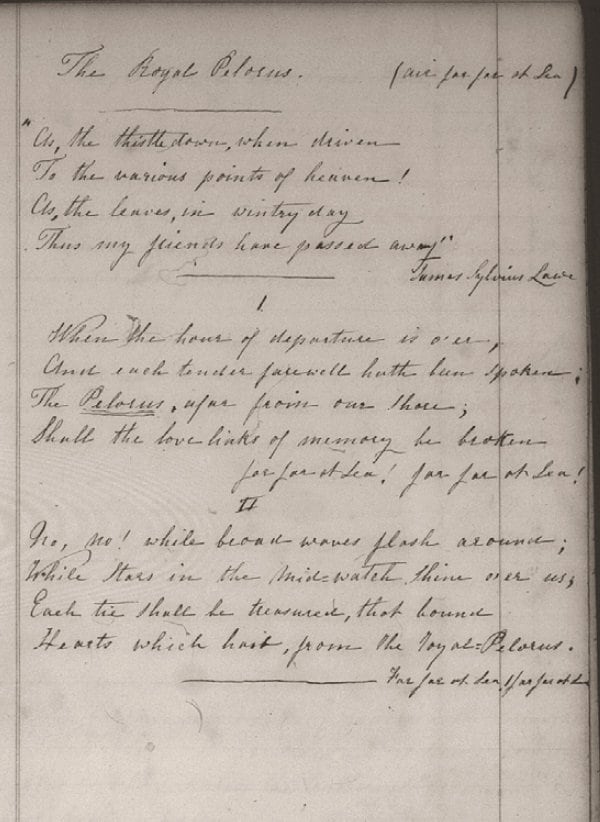 The Royal Pelorus. (air far far at Sea)
"As, the thistledown, when driven
To the various points of heaven!
As, the leaves, in wintry day
Thus my friends have passed away"
James Sylvius Lawe
I
When the hour of departure is o'er,
And each tender farewell hath been spoken;
The Pelorus, afar from our shore;
Shall the love links of memory be broken
far far at Sea! far far at Sea!
II
No, no! while broad waves flash around;
While Stars in the mid=watch shine o'er us,
Each tie shall be treasured, that bound
Hearts which hail, from the Royal=Pelorus.
Far far at Sea, far far at S